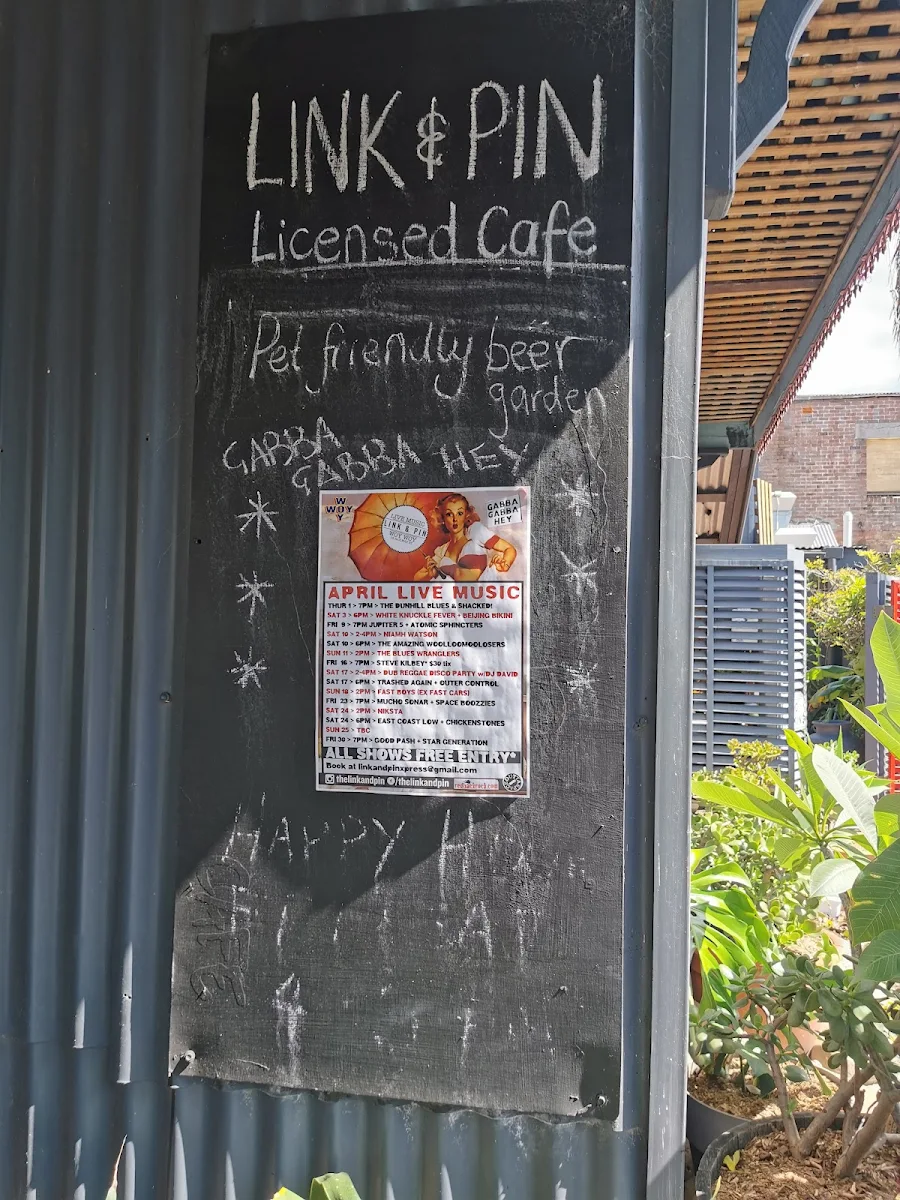 LINK & PIN
Licensed Cafe
Pet friendly beer
garden
GABBA
GABBA HEY
W
WOY
Y
LIVE MUSIC
LINK & PIN
WOY WOY
GABBA
GABBA
HEY
APRIL LIVE MUSIC
THUR 1 > 7PM > THE DUNHILL BLUES & SHACKED!
SAT 3 > 6PM > WHITE KNUCKLE FEVER + BEIJING BIKINI
FRI 9 > 7PM JUPITER 5 + ATOMIC SPHINCTERS
SAT 10 > 2-4PM > NIAMH WATSON
SAT 10 > 6PM > THE AMAZING WOOLLOOMOOLOSERS
SUN 11 > 2PM > THE BLUES WRANGLERS
FRI 16 > 7PM > STEVE KILBEY* $30 tix
SAT 17 > 2-4PM > DUB REGGAE DISCO PARTY w/DJ DAVID
SAT 17 > 6PM > TRASHED AGAIN + OUTER CONTROL
SUN 18 > 2PM > FAST BOYS (EX FAST CARS)
FRI 23 > 7PM > MUCHO SONAR + SPACE BOOZZIES
SAT 24 > 2PM > NIKSTA
SAT 24 > 6PM > EAST COAST LOW + CHICKENSTONES
SUN 25 > TBC
FRI 30 > 7PM > GOOD PASH + STAR GENERATION
ALL SHOWS FREE ENTRY*
Book at linkandpinxpress@gmail.com
thelinkandpin /thelinkandpin
HAPPY
CAFE
4